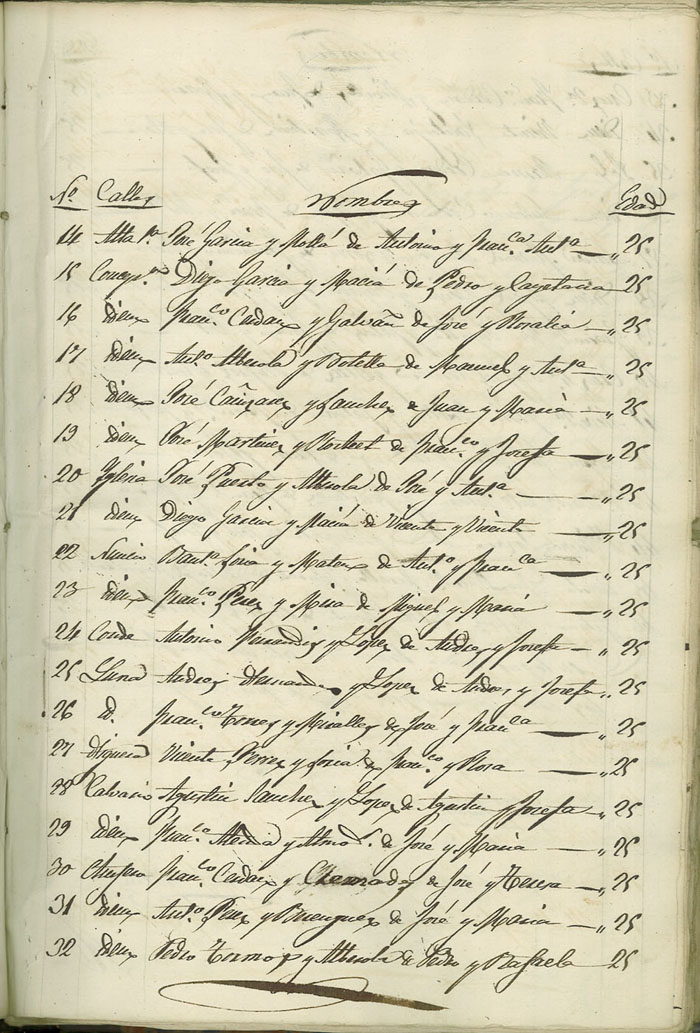 Nº. Calles Nombres Edad
14 Alta Pª. José Garcia y Mollá de Antonio y Franca. Anta. „ 25
15 Concepn. Diego Garcia y Maciá de Pedro y Cayetana 25
16 idem Franco. Candax y Galvañ de José y Rosalia „ 25
17 idem Anto. Alberola y Botella de Manuel y Anta. „ 25
18 idem José Cañizarez y Sanchez de Juan y Maria „ 25
19 idem José Martinez y de Franco. y Josefa „ 25
20 Yglesia José Puerto y Alberola de José y Anta. „ 25
21 idem Diego Garcia y Maciá de Vicente y Vicenta „ 25
22 Nuncio Bauta. Soria y Mateux de Anto. y Franca. „ 25
23 idem Franco. Perez y Mira de Miguel y Maria „ 25
24 Conde Antonio y Lopez de Andres y Josefa „ 25
25 Luna Andres Hernandez y Lopez de Andres y Josefa „ 25
26 id. Franco. Torres y Miralles de José y Franca. „ 25
27 Higuera Vicente Perez y Soria de Franco. y Rosa „ 25
28 Calvario Agustin Sanchez y Lopez de Agustin y Josefa „ 25
29 idem Franco. y de José y Maria „ 25
30 Franco. Candax y de José y Teresa „ 25
31 idem Anto. Perez y de José y Maria „ 25
32 idem Pedro Tormo y Alberola de Pedro y Rafaela 25